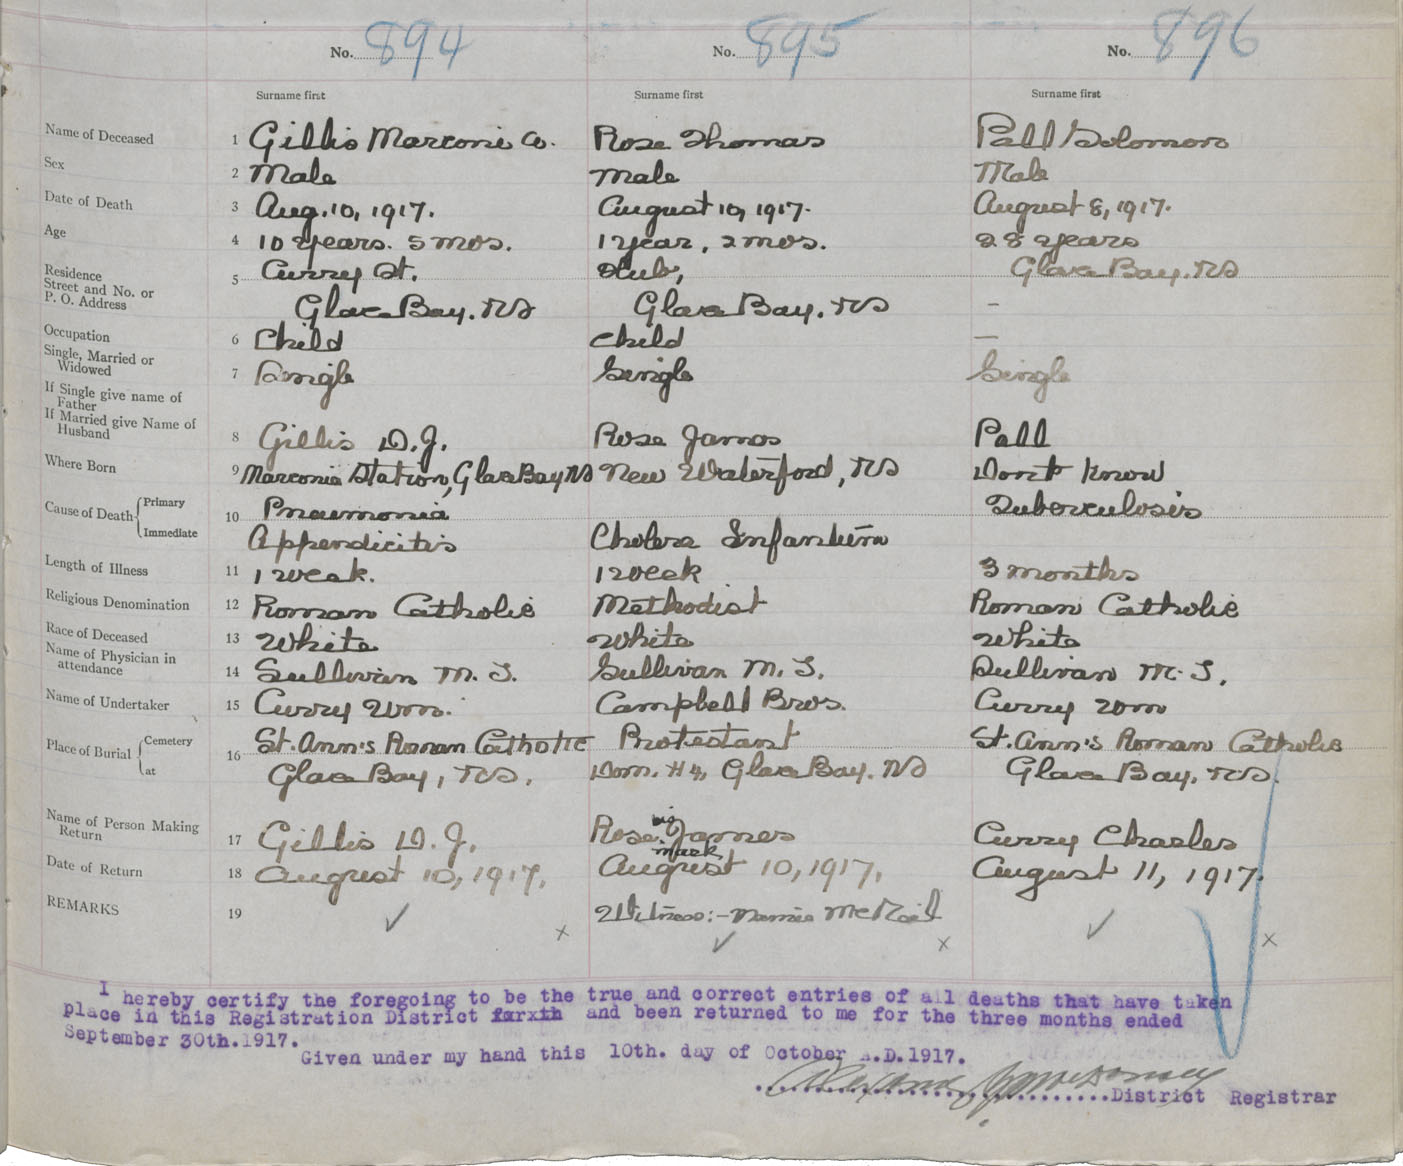 No. 894 No. 895 No. 896
Surname first Surname first Surname first
Name of Deceased 1 Gillis Marconi Rose Thomas Pall Solomon
Sex 2 Male Male Male
Date of Death 3 Aug. 10, 1917. August 10, 1917. August 8, 1917.
Age 4 10 years. 5 mos. 1 year, 2 mos. 28 years
Residence 5 Curry St. Hub, Glace Bay. NS
Street and No. or
P. O. Address Glace Bay. NS Glace Bay. NS –
Occupation 6 Child Child —
Single, Married or
Widowed 7 Single Single Single
If Single give name of
Father
If Married give Name of
Husband 8 Gillis D. J. Rose James Pall
Where Born 9 Marconi Station, Glace Bay NS New Waterford, NS Dont know
Cause of Death { Primary 10 Pneumonia Tuberculosis
Immediate Appendicitis Cholera Infantum
Length of Illness 11 1 week. 1 week 3 months
Religious Denomination 12 Roman Catholic Methodist Roman Catholic
Race of Deceased 13 White White White
Name of Physician in
attendance 14 Sullivan M. T. Sullivan M. T. Sullivan M. T.
Name of Undertaker 15 Curry Wm. Campbell Bros. Curry Wm
Place of Burial { Cemetery 16 St. Ann's Roman Catholic Protestant St. Ann's Roman Catholic
at Glace Bay, NS. Dom. #4, Glace Bay. NS Glace Bay, NS.
Name of Person Making
Return 17 Gillis D. J. Rose his James mark Curry Charles
Date of Return 18 August 10, 1917. August 10, 1917. August 11, 1917.
REMARKS 19 Witness:-
I hereby certify the foregoing to be the true and correct entries of all deaths that have taken
place in this Registration District and been returned to me for the three months ended
September 30th. 1917.
Given under my hand this 10th. day of October A.D. 1917.
District Registrar